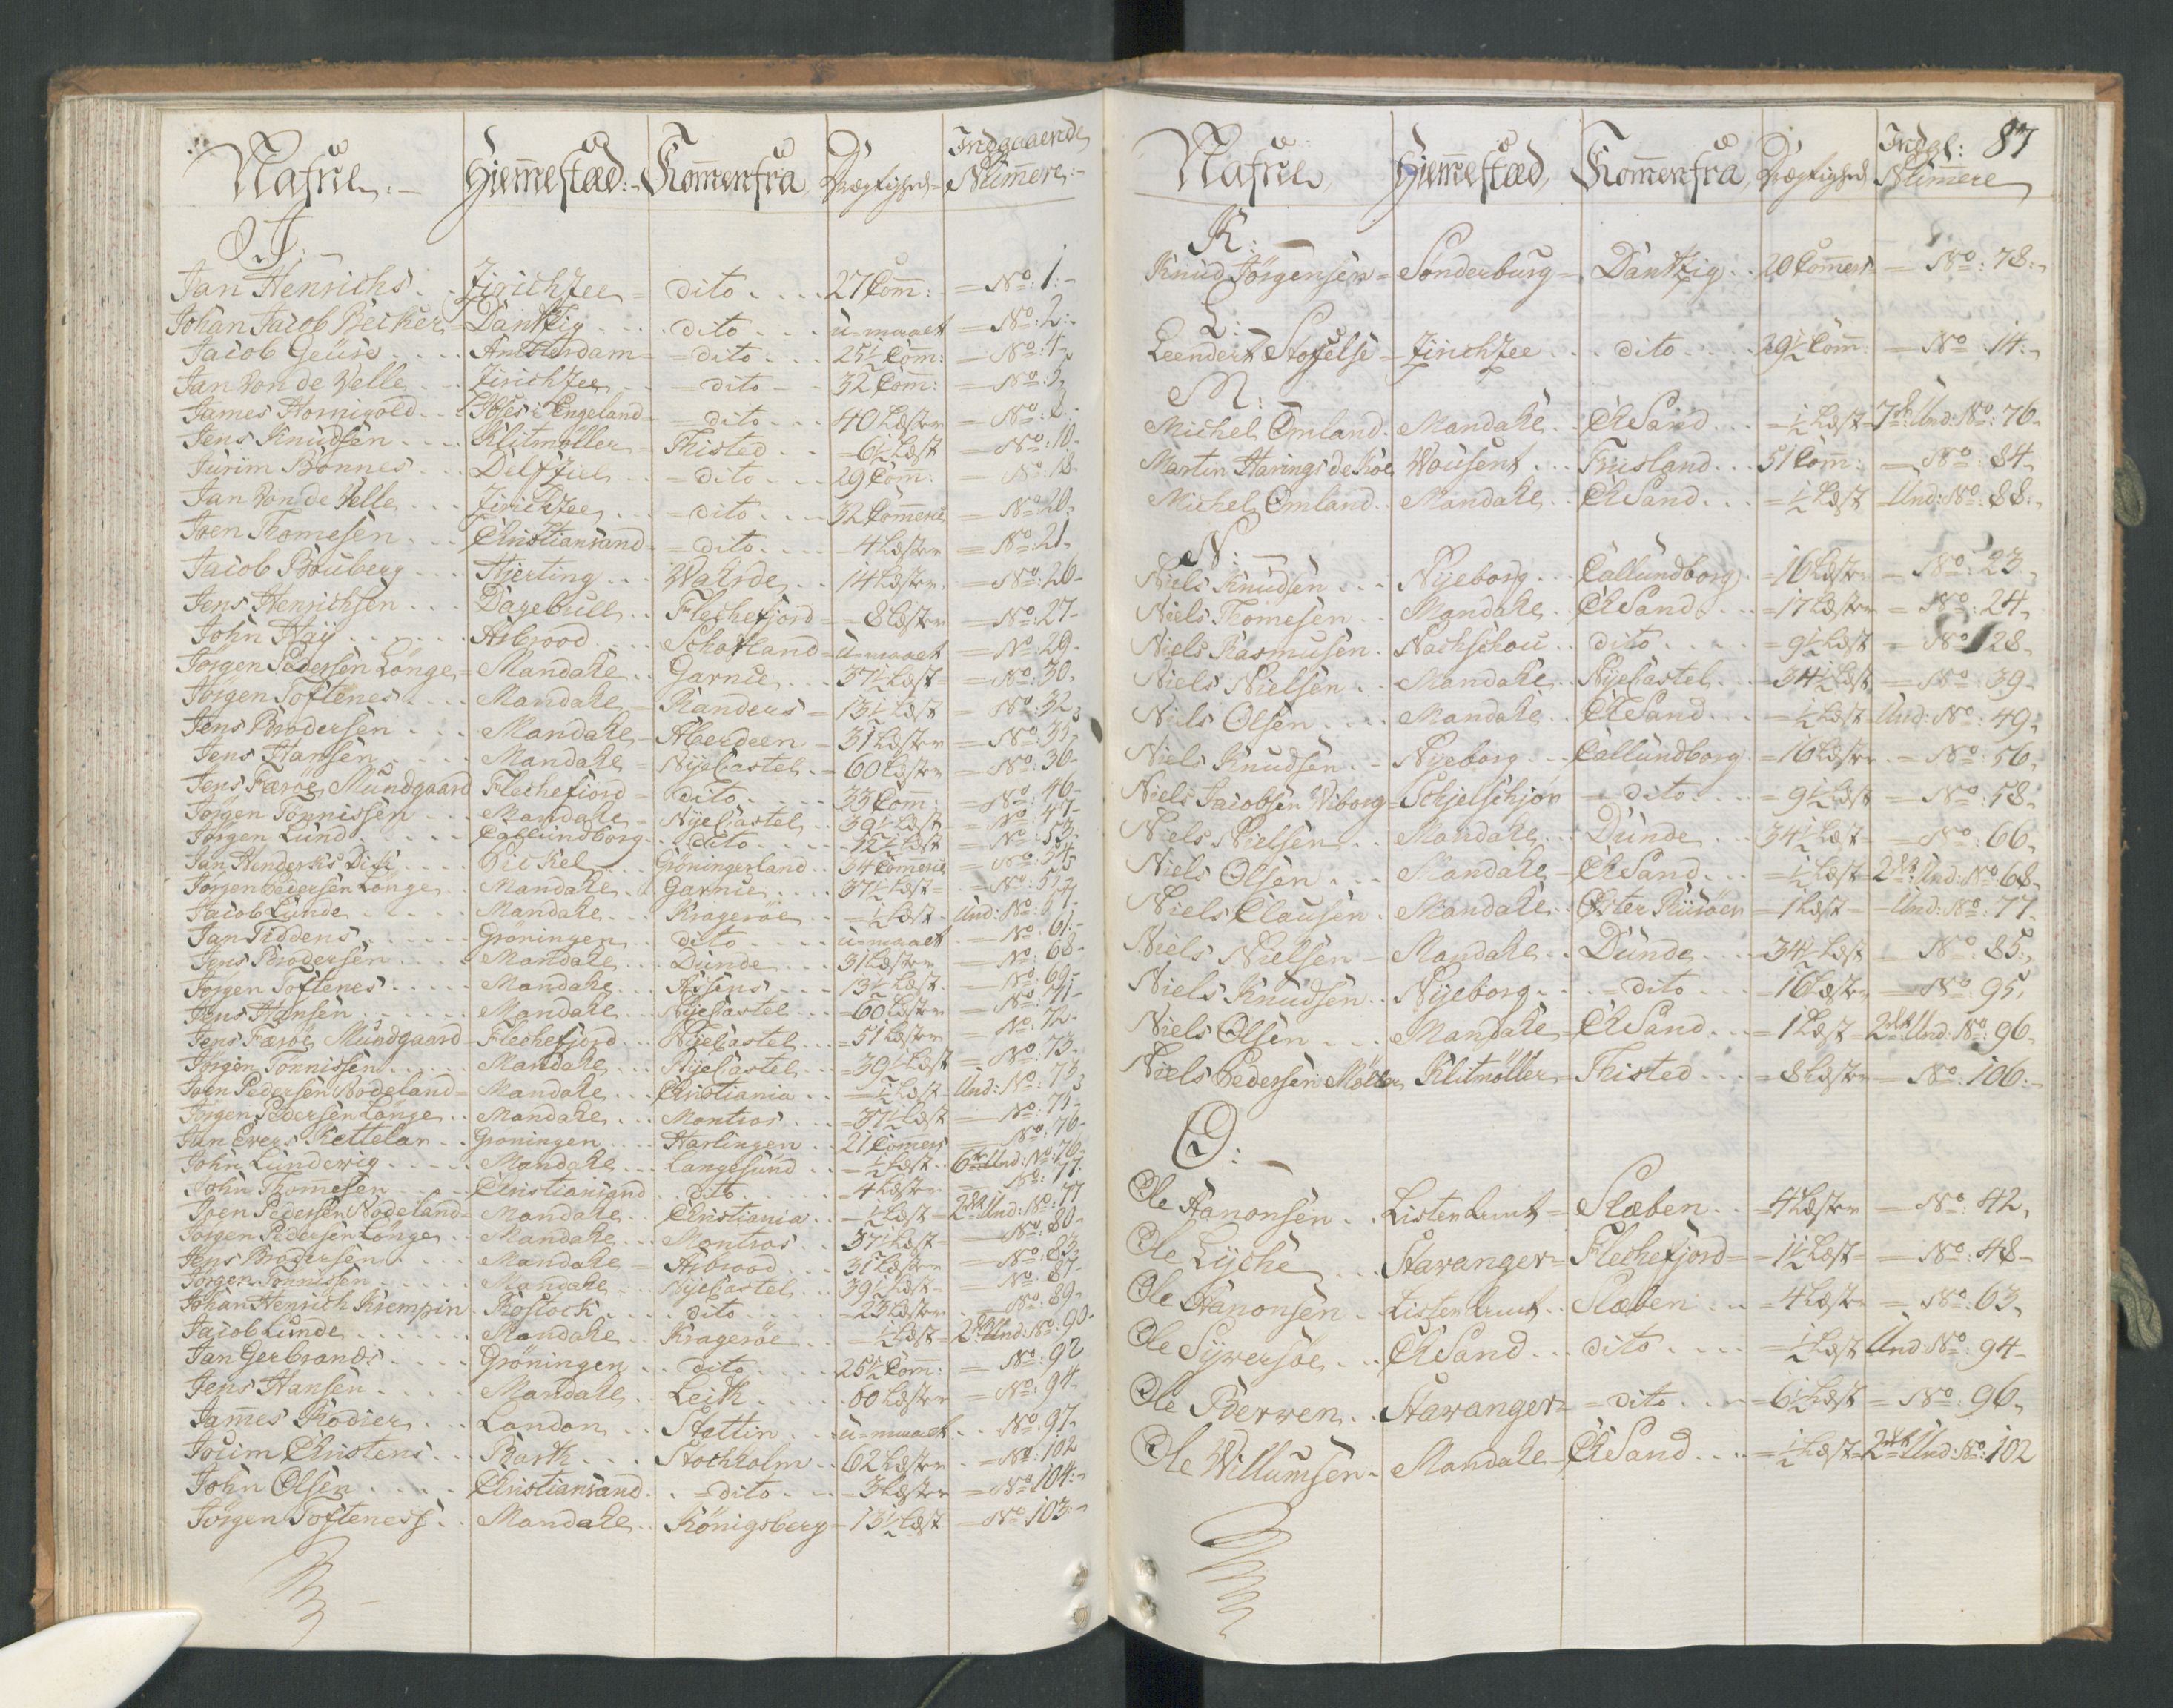 Nafne Hiemmestæd Kommenfra Drægtighed Indgaaende Nummere
J:
Jan Henrichs Zirichzee dito 27 Comm: No: 1
Johan Jacob Becker Dantzig dito u-maaet No: 2
Jacob Geuse Amsterdam dito 25½ Comm: No: 4
Jan Von de Velle Zirichzee dito 32 Comm: No: 5
James Hornigold i Engeland dito 40 Læster No: 
Jens Knudsen Klitmøller Thisted 6½ Læst No: 10
Jurim Bonnes Delfziel dito 29 Comm: No: 18
Jan Von de Velle Zirichzee dito 32 Commerce No: 20
Joen Thomesen Christiansand dito 4 Læster No: 21
Jacob Bouberg Hierting Wahrde 14 Læster No: 26
Jens Henrichsen Dagebull Flechefjord 8 Læster No: 27
John Haÿ Asbrood Schottland u-maaet No: 29
Jørgen Pedersen Lönge Mandahl Garnie 37½ Læst No: 30
Jörgen Toftenes Mandahl Randers 13½ Læst No: 32
Jens Brodersen Mandahl Aberdeen 31 Læster No: 
Jens Hansen Mandahl Nyecastel 60 Læster No: 36
Jens Færöe Mundgaard Flechefiord dito 33 Comm: No: 46
Jörgen Tönnissen Mandahl Nyecastel 39½ Læst No: 47
Jörgen Lund Callundborg dito 12½ Læst No: 53
Jan Henderks Dick Pickel Gröningerland 34 Commerce No: 54
Jørgen Pedersen Lönge Mandahl Garnie 37½ Læst No: 55
Jacob Lunde Mandahl Kragerøe ½ Læst Und: No: 
Jan Tiddens Gröningen dito u-maaet No: 61
Jens Brodersen Mandahl Dunde 31 Læster No: 68
Jörgen Toftenes Mandahl Assens 13½ Læst No: 69
Jens Hansen Mandahl Nyecastel 60 Læster No: 71
Jens Færöe Mundgaard Flechefjord Nyecastel 51 Læster No: 72
Jörgen Tönnissen Mandahl Nyecastel 39½ Læst No: 73
Joen Pedersen Nodeland Mandahl Christiania ½ Læst Und: No: 73
Jørgen Pedersen Lönge Mandahl Montros 37½ Læst No: 75
Jan Evers Kettelar Groningen Harlingen 21 Commers No: 76
John Lundewig Mandahl Langesund ½ Læst 6te Und: No: 76
John Thommesen Christiansand dito 4 Læster No: 77
Joen Pedersen Nodeland Mandahl Christiania ½ Læst 2den Und: No: 77
Jørgen Pedersen Lönge Mandahl Montros 37½ Læst No: 80
Jens Brodersen Mandahl Asbrood 31 Læster No: 83
Jörgen Tönnissen Mandahl Nyecastel 39½ Læst No: 87
Johan Henrich Krempin Rostoch dito 23 Læster No: 89
Jacob Lunde Mandahl Kragerøe ½ Læst 2den Und: No: 90
Jan Gerbrands Gröningen dito 25½ Comm: No: 92
Jens Hansen Mandahl Leith 60 Læster No: 94
James Rodier London Stettin u-maaet No: 97
Jocim Christens Barth Stockholm 62 Læster No: 102
John Olsen Christiansand dito 3 Læster No: 104
Jörgen Toftenes Mandahl Königsberg 13½ Læst No: 103
87
Nafne Hiemmestæd Kommenfra Drægtighed Indg: Nummere
K:
Knud Jörgensen Sönderburg Dantzig 20 Commers No: 78
L:
Leendert Stoffelse Zirichzee dito 29½ Comm: No: 14
M:
Michel Omland Mandahl ChSand ½ Læst 7de Und: No: 76
Martin Harings de Roe Wousent Frisland 51 Comm: No: 84
Michel Omland Mandahl ChSand ½ Læst Und: No: 88
N:
Niels Knudsen Nyeborg Callundborg 16 Læster No: 23
Niels Thomesen Mandahl ChSand 17 Læster No: 24
Niels Rasmusen Nachschou dito 9½ Læst No: 28
Niels Nielsen Mandahl Nyecastel 34½ Læst No: 39
Niels Olsen Mandahl ChSand ½ Læst Und: No: 49
Niels Knudsen Nyeborg Callundborg 16 Læster No: 56
Niels Jacobsen Wiborg Schjelschjør dito 9½ Læst No: 58
Niels Nielsen Mandahl Dunde 34½ Læst No: 66
Niels Olsen Mandahl ChSand ½ Læst 2det Und: No: 68
Niels Clausen Mandahl Øster Riisöer 1 Læst Und: No: 77
Niels Nielsen Mandahl Dunde 34½ Læst No: 85
Niels Knudsen Nyeborg dito 16 Læster No: 95
Niels Olsen Mandahl ChSand 1 Læst 2det Und: No: 96
Niels Pedersen Möller Klitmöller Thisted 8 Læster No: 106
O:
Ole Aanonsen Listerlund Slæben 4 Læster No: 42
Ole Lyche Stavanger Flechefjord 1½ Læst No: 48
Ole Aanonsen Listerlund Slæben 4 Læster No: 63
Ole Syversöe ChSand dito ½ Læst Und: No: 94
Ole Berven Stavanger dito 6½ Læst No: 96
Ole Willumsen Mandahl ChSand ½ Læst 2det Und: No: 102